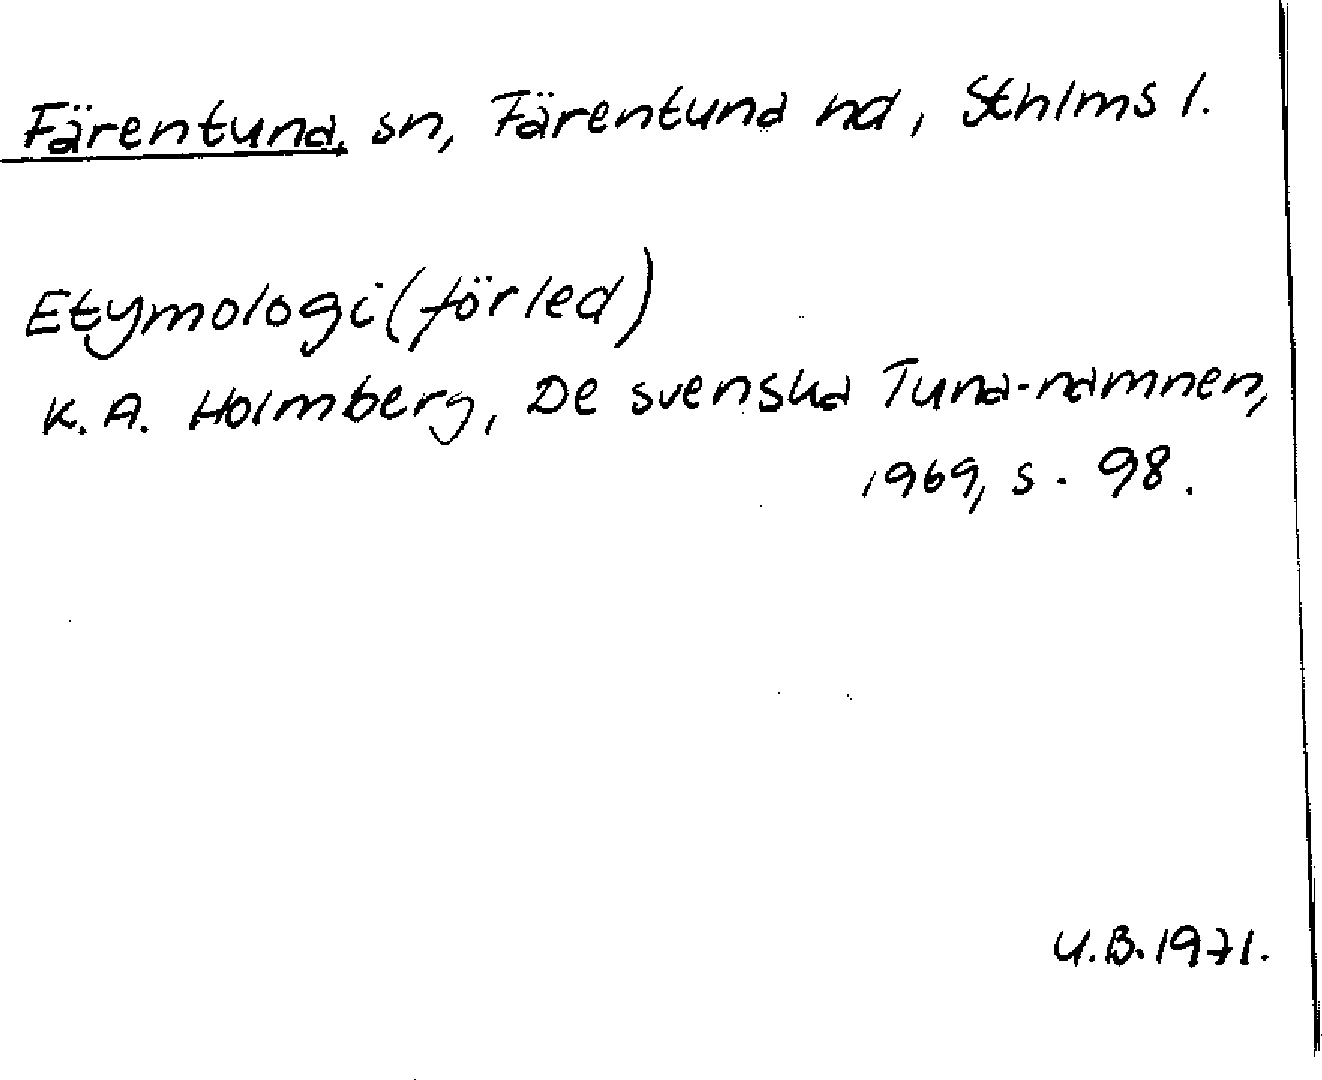 Färentuna, sn, Färentuna hd, Sthlms l.
Etymologi (förled)
K. A. Holmberg, De svenska Tuna-namnen,
1969, s. 98.
U.B. 1971.